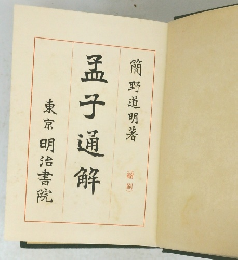 簡野道明著
孟子通解
東京 明治書院